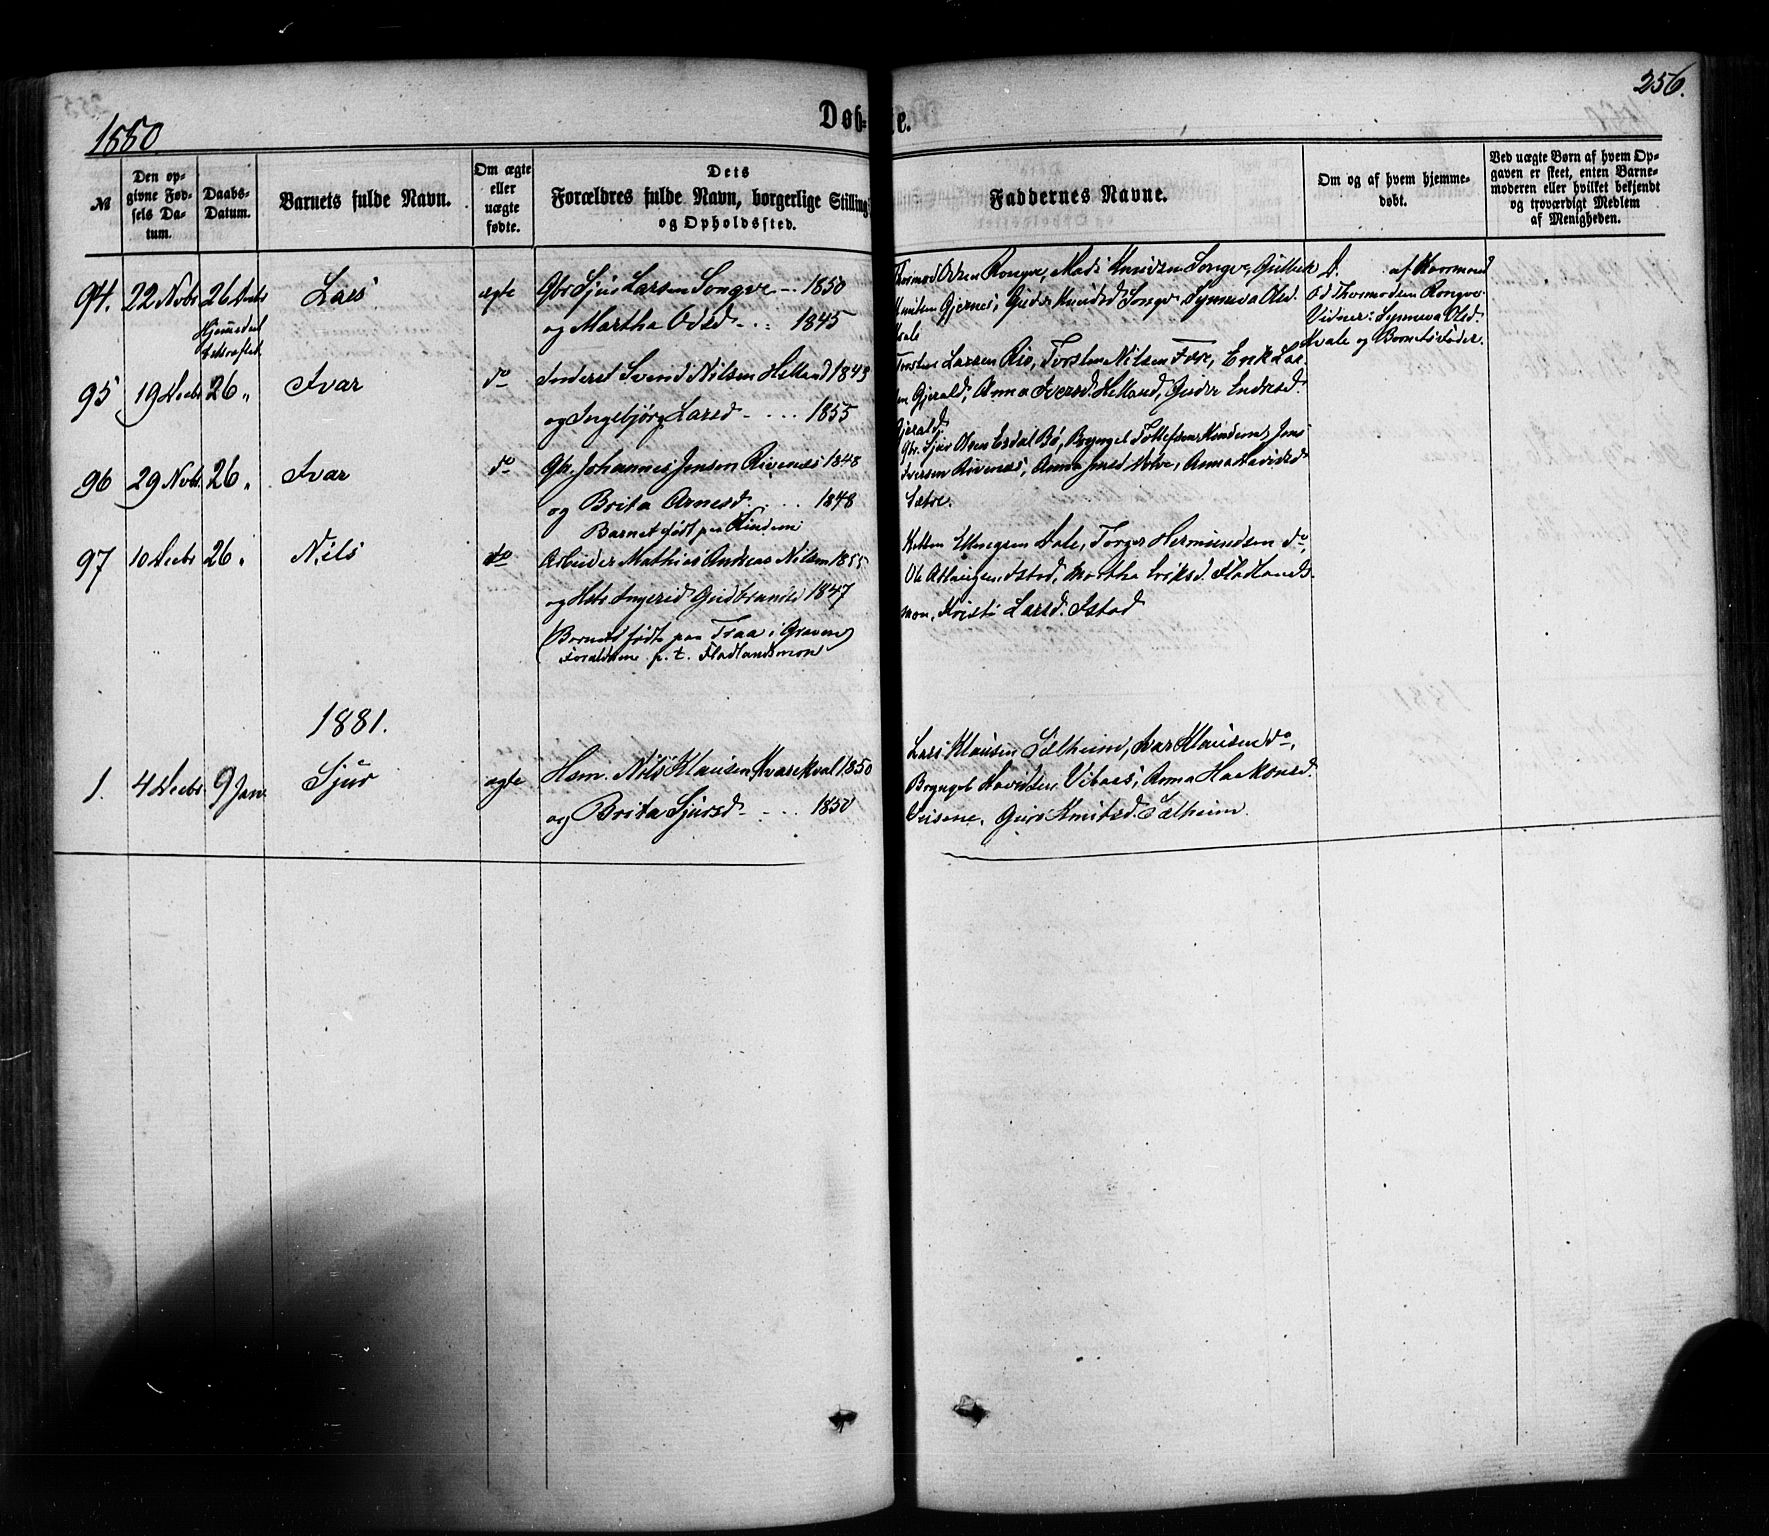 256.
1880
Døb-
te.
№
Den op-
givne Fød-
sels Da-
tum.
Daabs-
Datum.
Barnets fulde Navn.
Om ægte
eller
uægte
fødte.
Dets
Forældres fulde Navn, borgerlige Stilling
og Opholdssted.
Faddernes Navne.
Om og af hvem hjemme-
døbt.
Ved uægte Børn af hvem Op-
gaven er skeet, enten Barne-
moderen eller hvilket bekjendt
og troværdigt Medlem
af Menigheden.
94. 22 Novbr 26 Decbr Lars ægte Gbr Sjur Larsen Songve - - 1850
og Martha Odsd - .. 1845
Hjemmedaab
bekræftet
Thormod Odsen Rongve, Mads Knudsen Songve, Gulbeik
Knudsen Gjernes, Guda Knudsd Songve Synneva Olsd.
Kvale
D. af
Od Thormodsen Rongve.
Vidner: Synneva Olsd.
Kvale og Barnets Fader.
95 19 Decbr 26 " Ivar do Inderst Svend Nilsen Helland 1843
og Ingebjørg Larsd - . . . 1855
Torstein Larsen Rio, Torsten Nilsen Fære, Erik Lar-
sen Gjerald, Anna Iversd. Helland, Guda Endresd.
Gjerald.
96 29 Novbr 26 " Ivar do Gbr. Johannes Jensen Rivenæs 1848
og Brita Arnesd . . . 1848
Barnet født paa Kindem
Gbr. Sjur Olsen Esdal Bø, Bryngel Tollefsen Kindem, Jens
Iversen Rivenæs, Anna Davidsd
Sætve.
97 10 Decbr 26 " Nils do Arbeider Mathias Andreas Nilsen 1855
og Hstr Ingerid Gudbrandsd 1847
(Barnet født paa Traa i Graven
Forældrene p. t. Fladlandsmoen)
Ketten Ellingsen Dale, Torger Hermundsen do,
Ole Istad, Martha Eriksd. Fladlands-
moen, Kristi Larsd. Istad
1881.
1. 4 Decbr 9 Jan Sjur ægte Hsm. Nils Klausen Kvarekval 1850
og Brita Sjursd - . . . 1850
Lars Klausen Sælheim, Ivar Klausen do,
Brynjel Davidsen Vibaas, Anna Haakonsd.
Guro Knutsd. Sælheim.